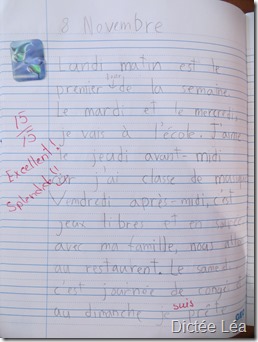 8 Novembre
Lundi matin est le
premier jour de la semaine.
Le mardi et le mercredi
je vais à l'école. J'aime
le jeudi avant-midi
car j'ai classe de
Vendredi après-midi, c'est
jeux libres et en
avec ma famille, nous
au restaurent. Le samedi
c'est journée de congé
au dimanche je suis
15/15
Excellent!
Splendide!!
Dictée Léa